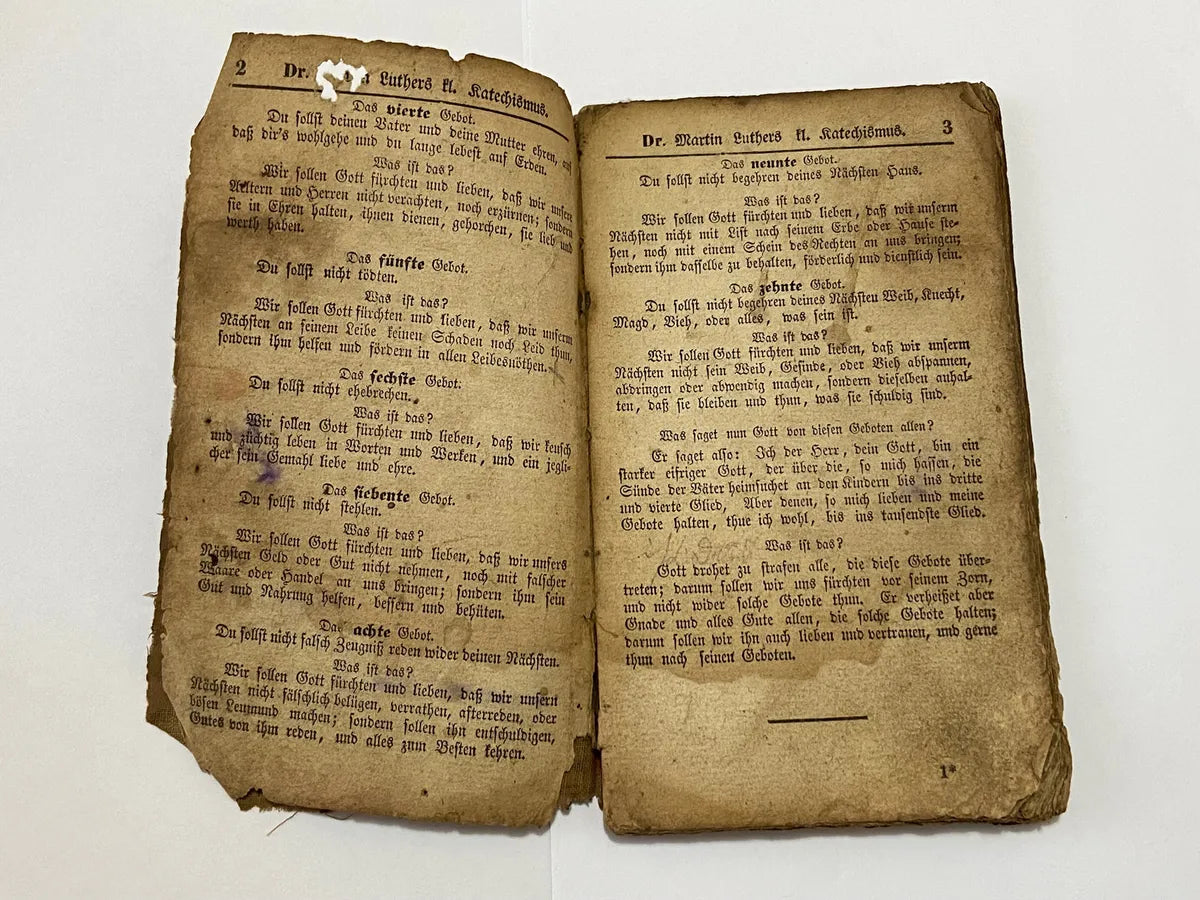 2 Dr. Luthers kl. Katechismus.
Das vierte Gebot.
Du sollst deinen Vater und deine Mutter ehren, auf
daß dir's wohlgehe und du lange lebest auf Erden.
Was ist das?
Wir sollen Gott fürchten und lieben, daß wir unsere
Aeltern und Herren nicht verachten, noch erzürnen; sondern
sie in Ehren halten, ihnen dienen, gehorchen, sie lieb und
werth haben.
Das fünfte Gebot.
Du sollst nicht tödten.
Was ist das?
Wir sollen Gott fürchten und lieben, daß wir unserm
Nächsten an seinem Leibe keinen Schaden noch Leid thun,
sondern ihm helfen und fördern in allen Leibesnöthen.
Das sechste Gebot.
Du sollst nicht ehebrechen.
Was ist das?
Wir sollen Gott fürchten und lieben, daß wir keusch
und züchtig leben in Worten und Werken, und ein jegli-
cher sein Gemahl liebe und ehre.
Das siebente Gebot.
Du sollst nicht stehlen.
Was ist das?
Wir sollen Gott fürchten und lieben, daß wir unsers
Nächsten Geld oder Gut nicht nehmen, noch mit falscher
Waare oder Handel an uns bringen; sondern ihm sein
Gut und Nahrung helfen, bessern und behüten.
Das achte Gebot.
Du sollst nicht falsch Zeugniß reden wider deinen Nächsten.
Was ist das?
Wir sollen Gott fürchten und lieben, daß wir unsern
Nächsten nicht fälschlich belügen, verrathen, afterreden, oder
bösen Leumund machen; sondern sollen ihn entschuldigen,
Gutes von ihm reden, und alles zum Besten kehren.
Dr. Martin Luthers kl. Katechismus. 3
Das neunte Gebot.
Du sollst nicht begehren deines Nächsten Haus.
Was ist das?
Wir sollen Gott fürchten und lieben, daß wir unserm
Nächsten nicht mit List nach seinem Erbe oder Hause ste-
hen, noch mit einem Schein des Rechten an uns bringen;
sondern ihm dasselbe zu behalten, förderlich und dienstlich sein.
Das zehnte Gebot.
Du sollst nicht begehren deines Nächsten Weib, Knecht,
Magd, Vieh, oder alles, was sein ist.
Was ist das?
Wir sollen Gott fürchten und lieben, daß wir unserm
Nächsten nicht sein Weib, Gesinde, oder Vieh abspannen,
abdringen oder abwendig machen, sondern dieselben anhal-
ten, daß sie bleiben und thun, was sie schuldig sind.
Was saget nun Gott von diesen Geboten allen?
Er saget also: Ich der Herr, dein Gott, bin ein
starker eifriger Gott, der über die, so mich hassen, die
Sünde der Väter heimsuchet an den Kindern bis ins dritte
und vierte Glied, Aber denen, so mich lieben und meine
Gebote halten, thue ich wohl, bis ins tausendste Glied.
Was ist das?
Gott drohet zu strafen alle, die diese Gebote über-
treten; darum sollen wir uns fürchten vor seinem Zorn,
und nicht wider solche Gebote thun. Er verheißet aber
Gnade und alles Gute allen, die solche Gebote halten;
darum sollen wir ihn auch lieben und vertrauen, und gerne
thun nach seinen Geboten.
1*